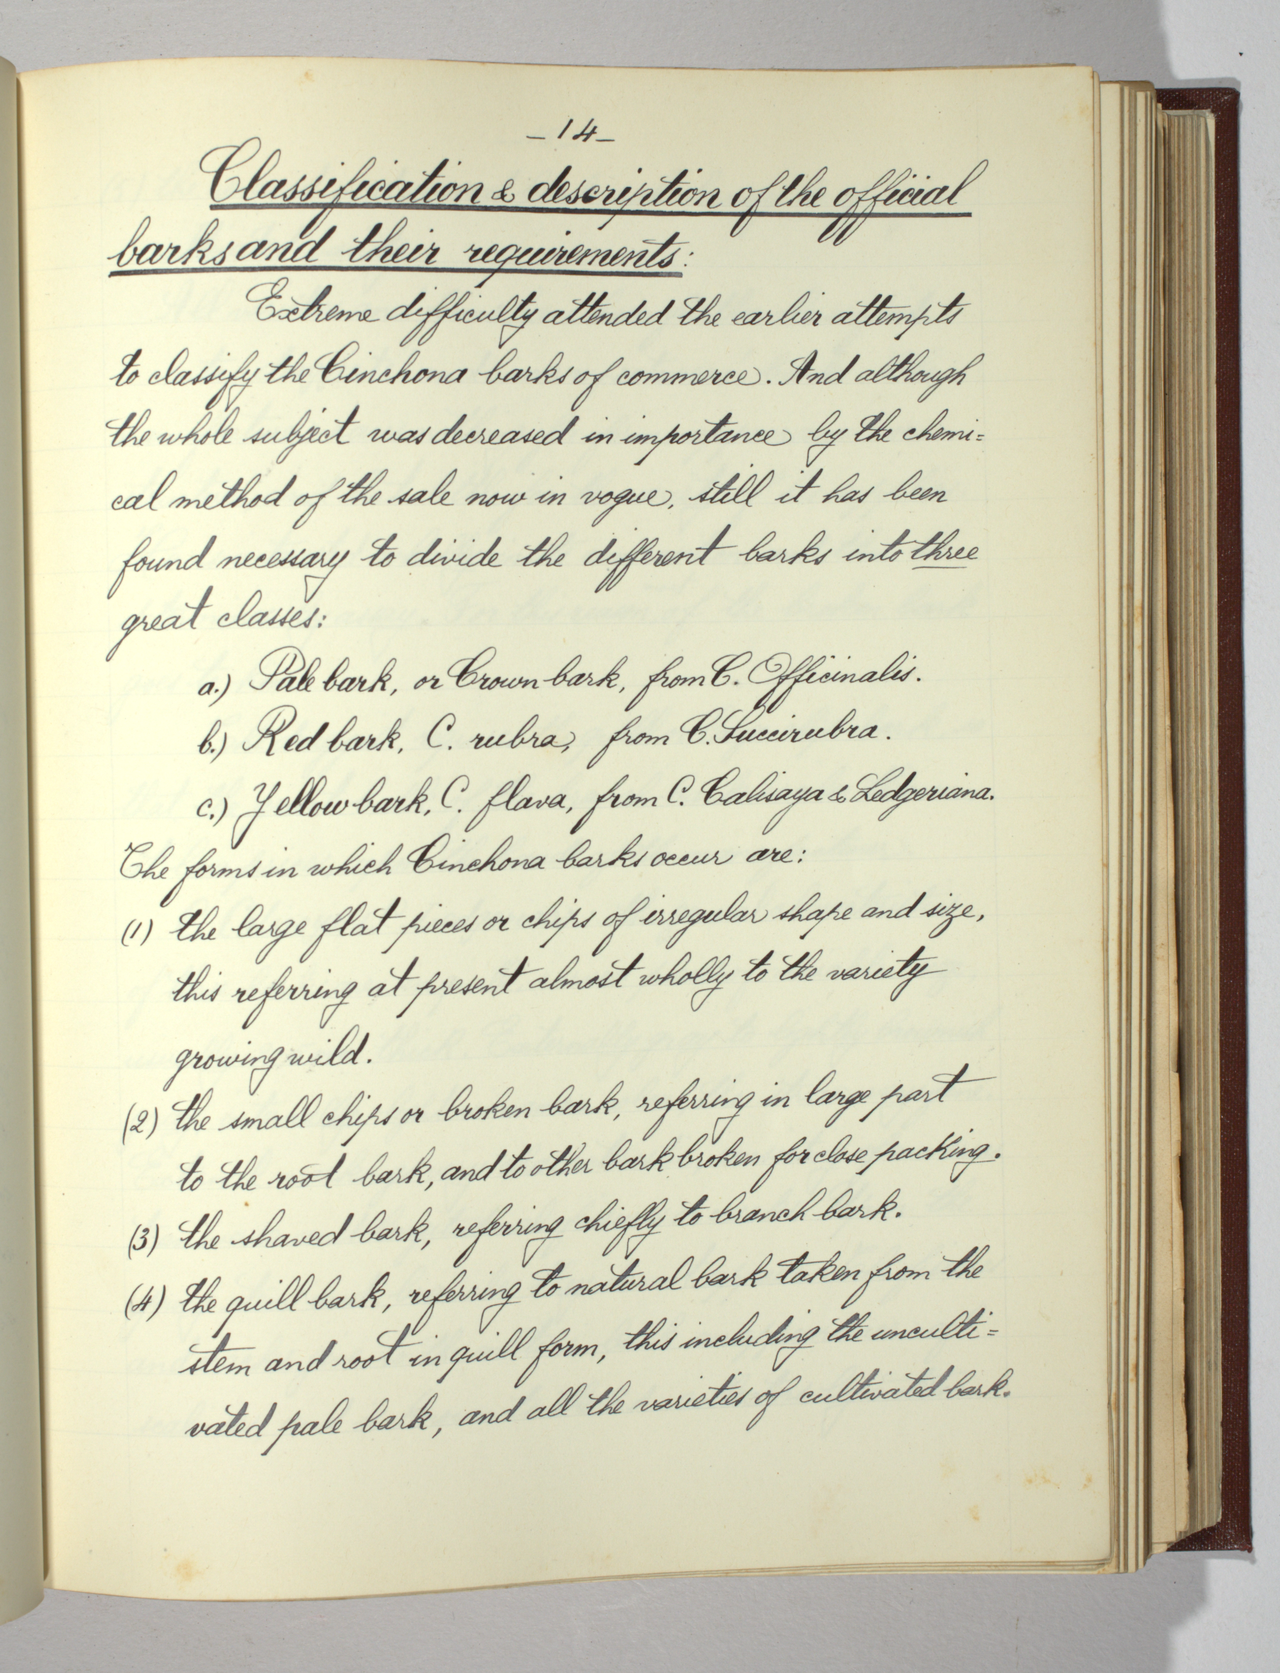 -14-
Classification & description of the official
barks and their requirements:
Extreme difficulty attended the earlier attempts
to classify the Cinchona barks of commerce. And although
the whole subject was decreased in importance by the chemi=
cal method of the sale now in vogue, still it has been
found necessary to divide the different barks into three
great classes:
a.) Pale bark, or Crown bark, from C. Officinalis.
b.) Red bark, C. rubra, from C. Succirubra.
c.) Yellow bark, C. flava, from C. Calisaya & Ledgeriana.
The forms in which Cinchona barks occur are:
(1) the large flat pieces or chips of irregular shape and size,
this referring at present almost wholly to the variety
growing wild.
(2) the small chips or broken bark, referring in large part
to the root bark, and to other bark broken for close packing.
(3) the shaved bark, referring chiefly to branch bark.
(4) the quill bark, referring to natural bark taken from the
stem and root in quill form, this including the unculti=
vated pale bark, and all the varieties of cultivated bark.